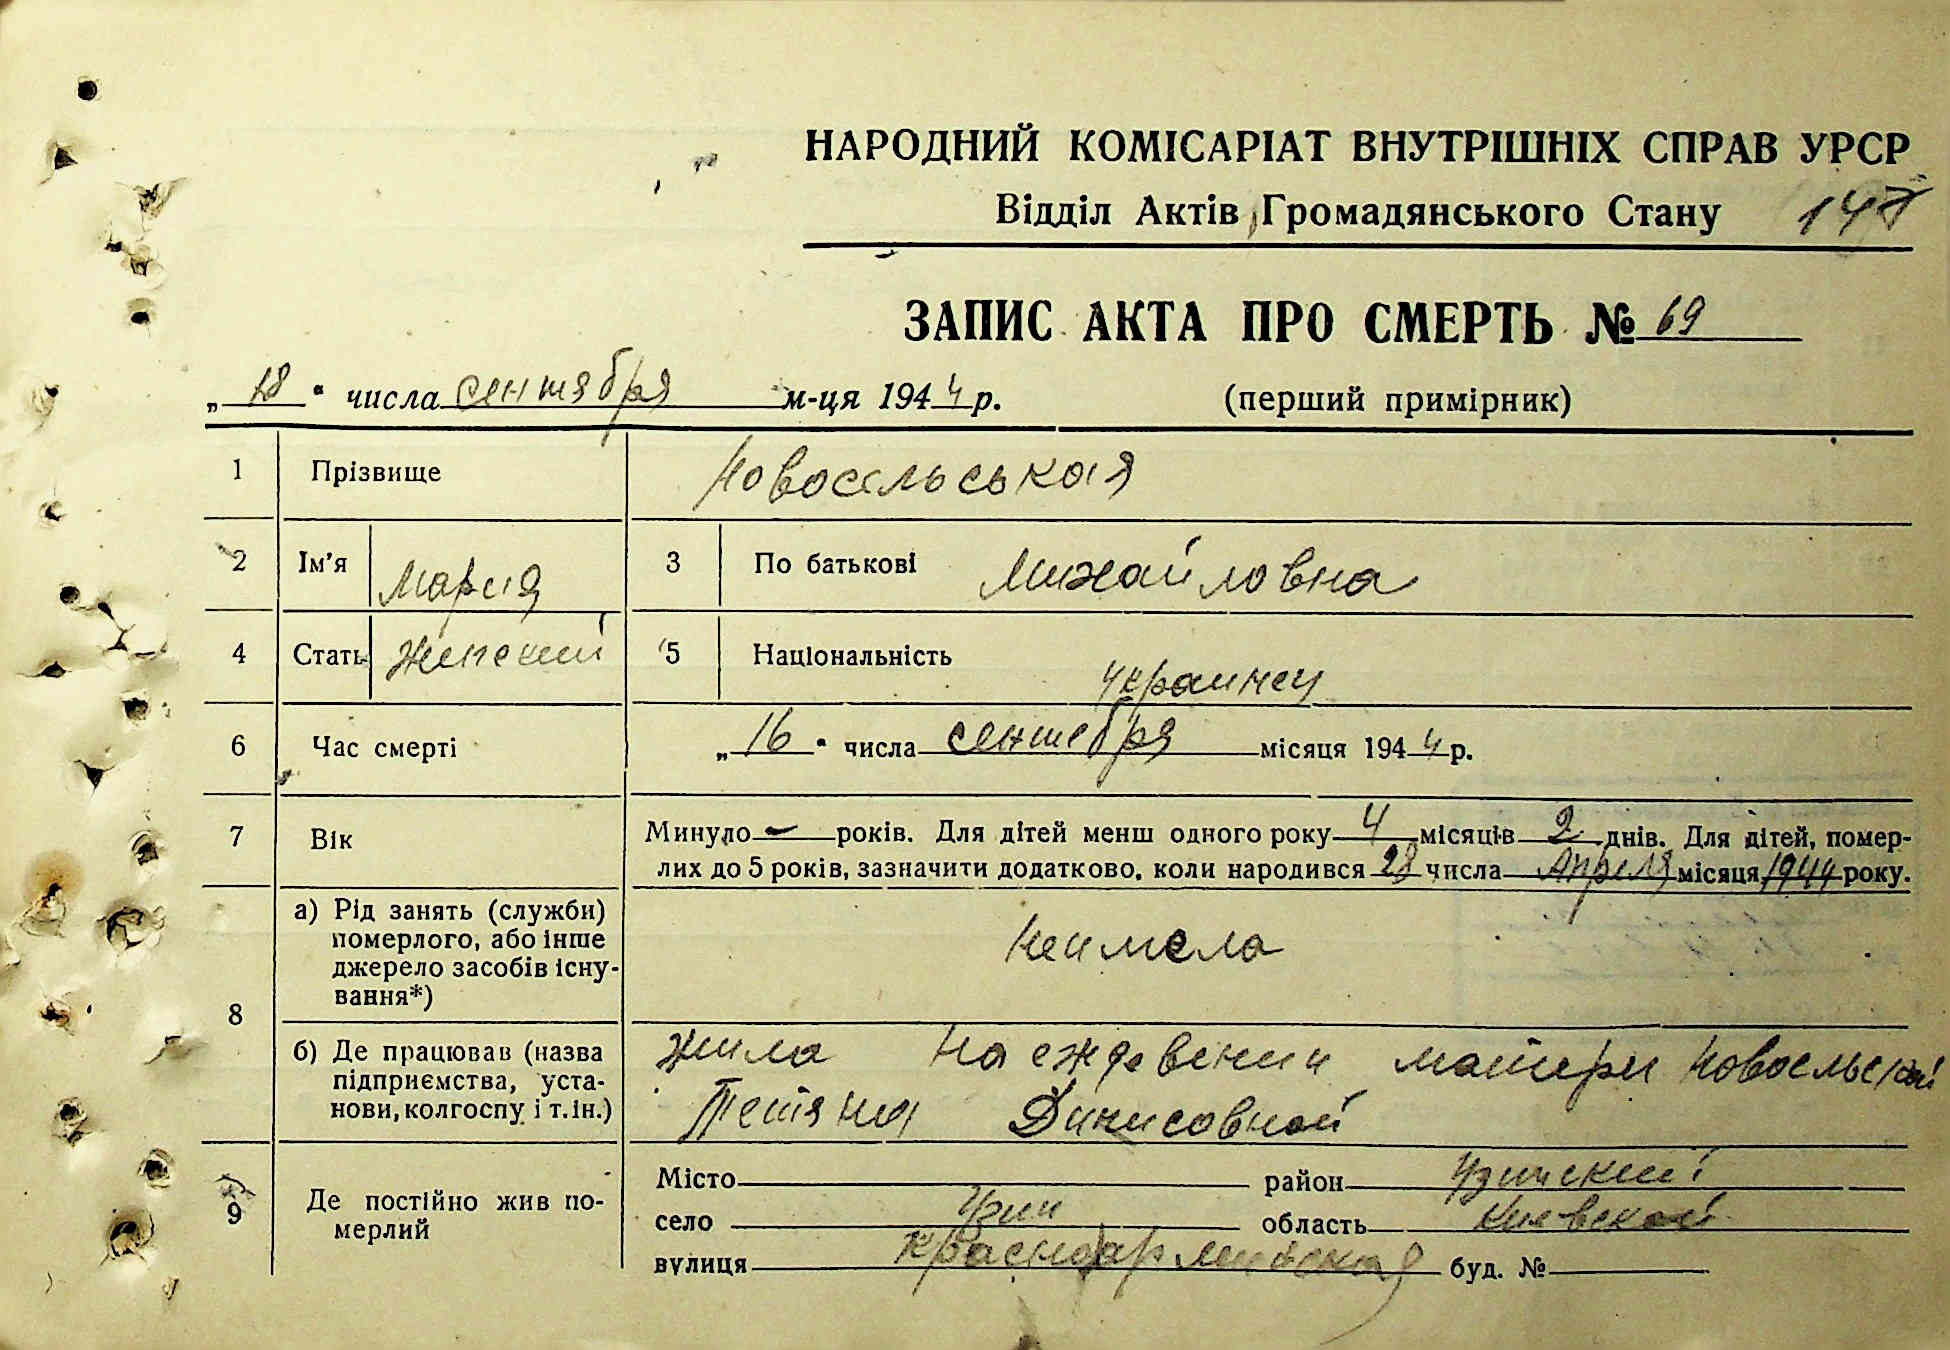 НАРОДНИЙ КОМІСАРІАТ ВНУТРІШНІХ СПРАВ УРСР
Відділ Актів Громадянського Стану 147
ЗАПИС АКТА ПРО СМЕРТЬ № 69
„18“ числа сентября м-ця 1944 р. (перший примірник)
1 Прізвище Новосельськая
2 Ім'я Мария 3 По батькові Михайловна
4 Стать Женский 5 Національність украинец
6 Час смерті „16“ числа сентебря місяця 1944 р.
7 Вік Минуло — років. Для дітей менш одного року 4 місяців 2 днів. Для дітей, помер-
лих до 5 років, зазначити додатково, коли народився 28 числа Апреля місяця 1944 року.
8 а) Рід занять (служби) померлого, або інше джерело засобів існу-вання*) Неимела
б) Де працював (назва підприємства, уста-нови, колгоспу і т. ін.) жила на еждевении матери Новосельской
Тетяна Динисовной
9 Де постійно жив по-мерлий Місто район Узинский
село Узин область Киевской
вулиця Красноармейская буд. №